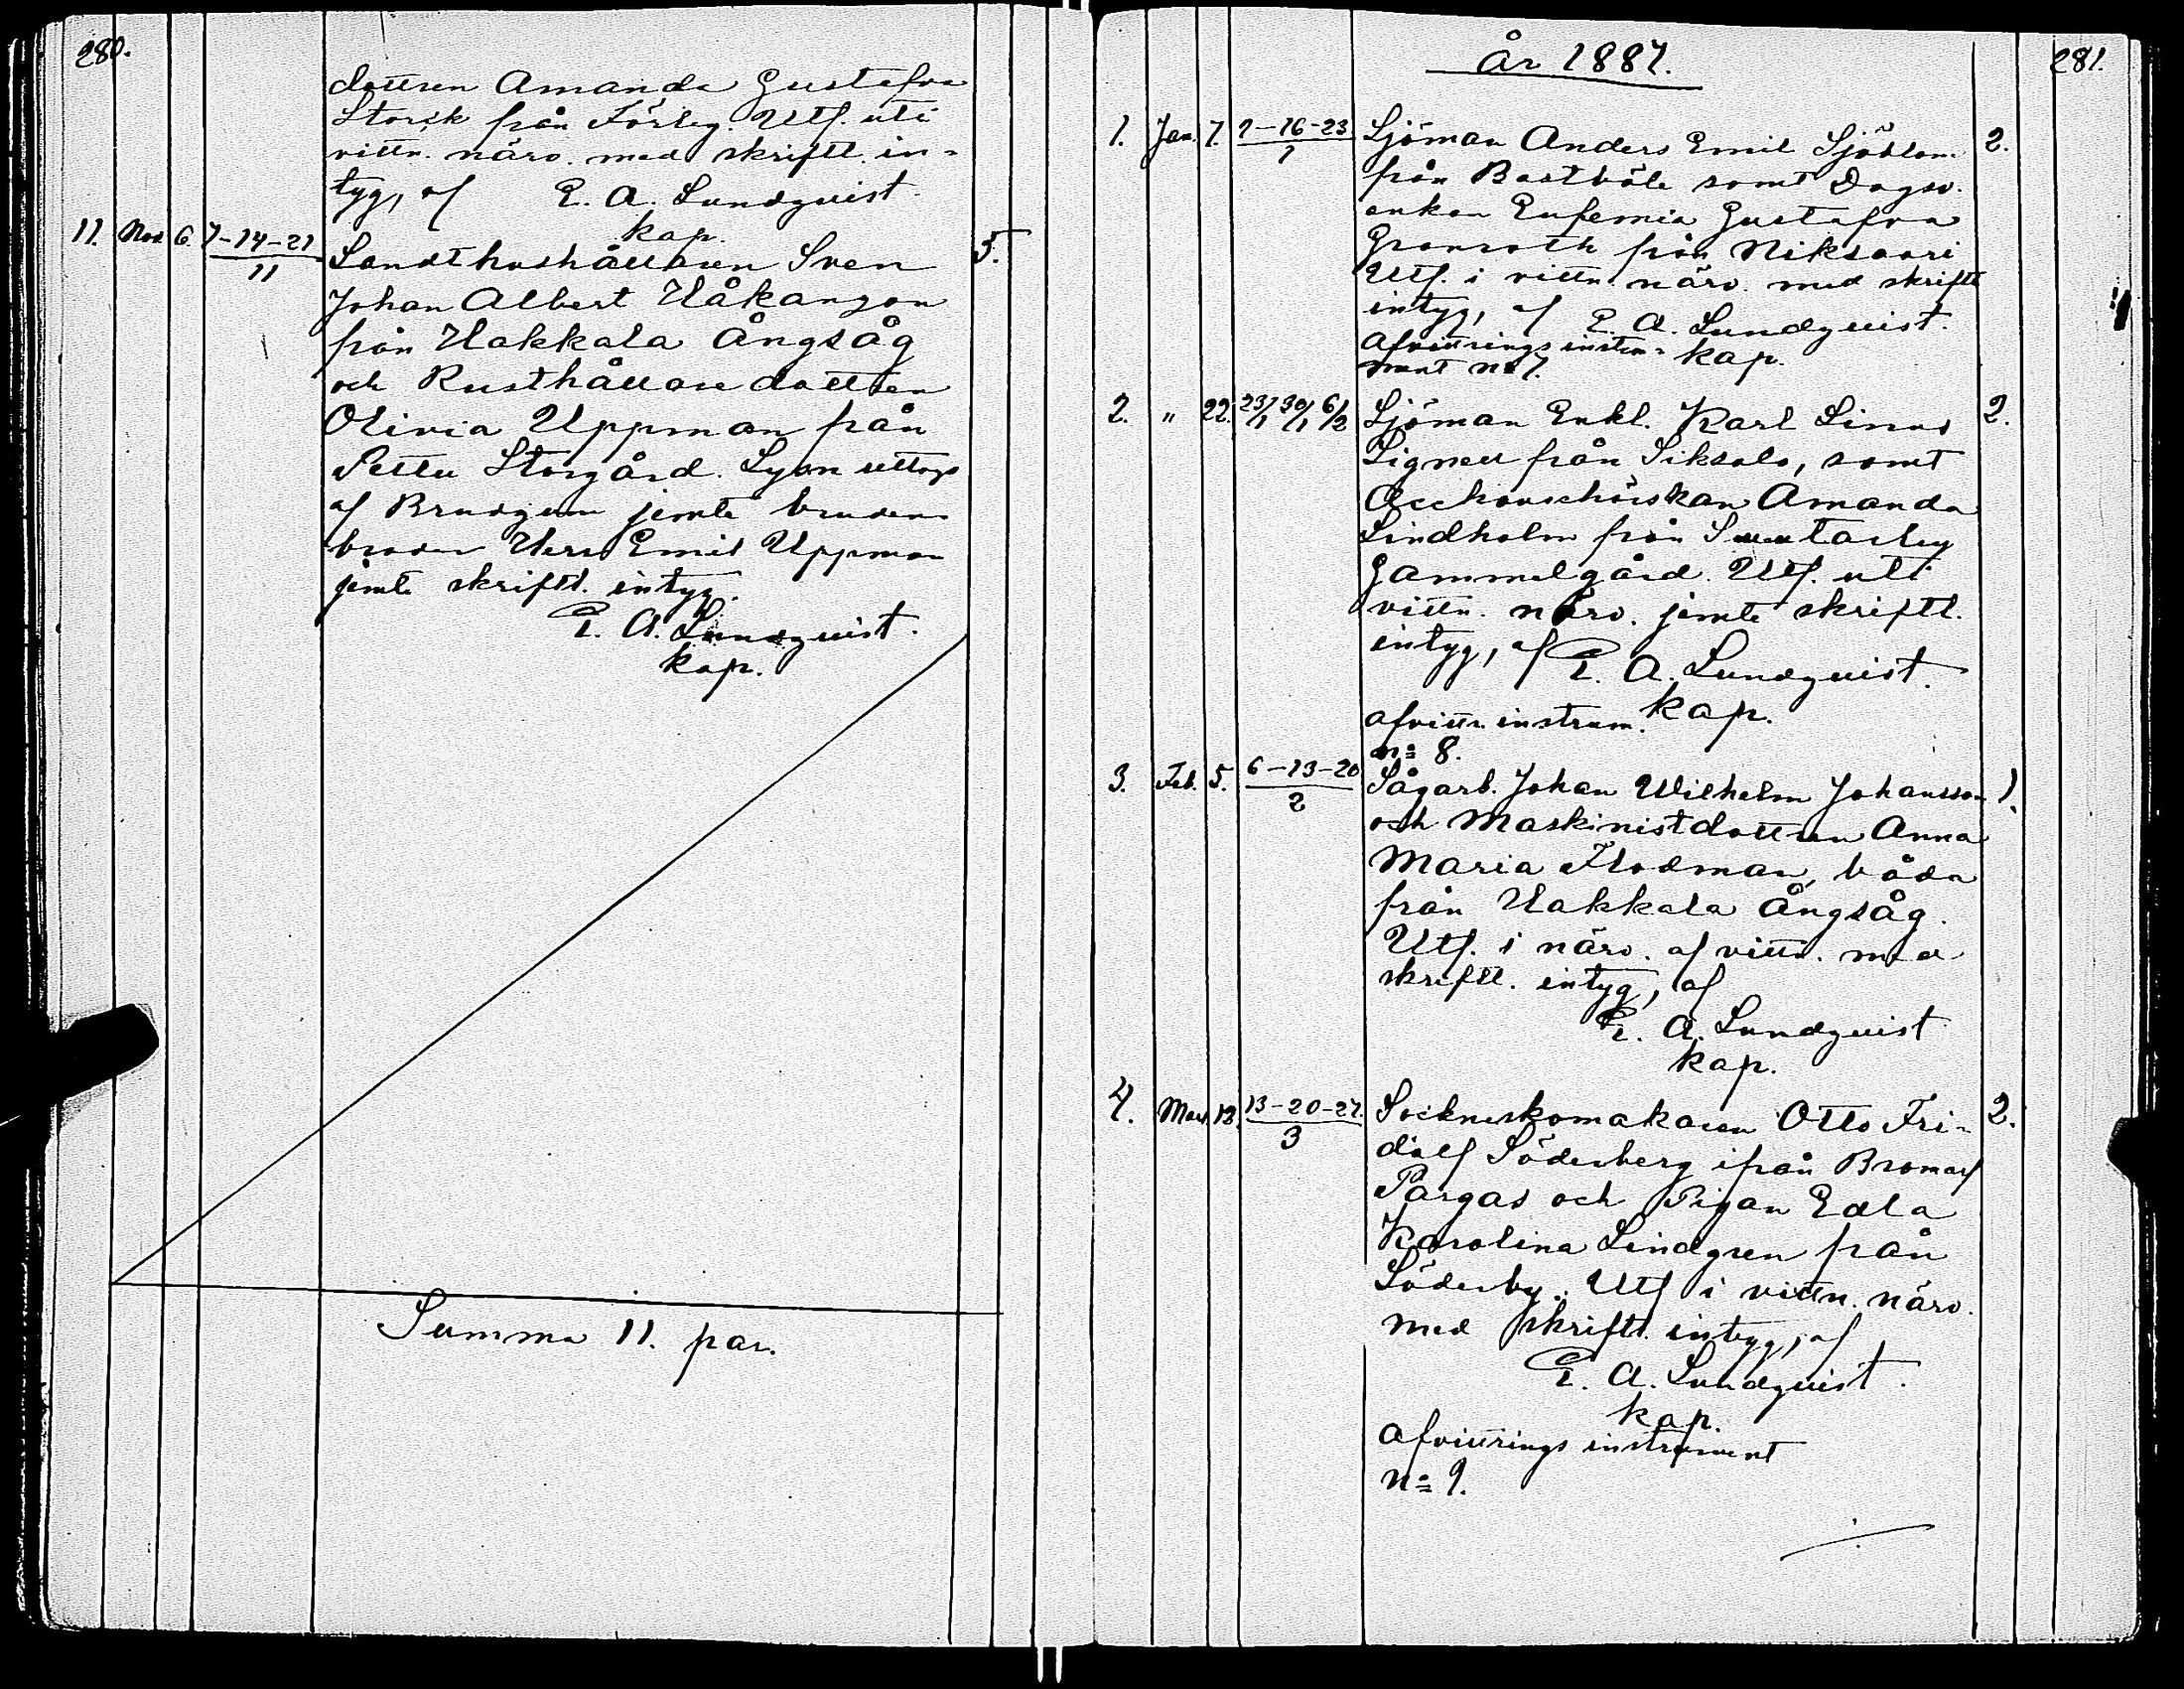 280.
dottren Amanda Gustafva
Storck från Förby. Utf. uti
vittn. närv. med skriftl. in-
tyg, af E. A. Lundqvist
kap.
11. Nov. 6. 7-14-21
11
Landthushållaren Sven 3.
Johan Albert Håkanson
från Hakkala Ångsåg
och Rusthållare dottren
Olivia Uppman från
Pettu Storgård. Lysn uttogs
af Brudgum jemte brudens
broder Herr Emil Uppman
jemte skriftl. intyg.
E. A. Lundqvist.
kap.
Summa 11. par.
År 1887. 281.
1. Jan. 7. 9-16-23
1
Sjöman Anders Emil Sjöblom 2.
från Bastböle samt Dagsv.
enkan Eufemia Gustafva
Granroth från Niksaari
Utf. i vittn. närv. med skriftl
intyg, af E. A. Lundqvist.
Afvittrings instru- kap.
ment no 7.
2. " 22. 23/1 30/1 6/2 Sjöman Enkl. Karl Linus 2.
Lignell från Siksalo, samt
Amanda
Lindholm från
Gammelgård. Utf. uti
vittn. närv. jemte skriftl.
intyg, af E. A. Lundqvist.
afvittr. instrum. kap.
no 8.
3. Feb. 5. 6-13-20
2
Sågarb. Johan Wilhelm Johansson 1.
och Maskinistdottren Anna
Maria Flodman, båda
från Hakkala Ångsåg.
Utf. i närv. af vittn. med
skriftl. intyg, af
E. A. Lundqvist
kap.
4. Mars 12. 13-20-27.
3
Sockneskomakaren Otto Fri- 2.
dolf Söderberg ifrån Bromarf
Pargas och Pigan Edla
Karolina Lindgren från
Söderby. Utf i vittn. närv.
med skriftl. intyg, af
E. A. Lundqvist.
kap.
Afvittrings instrument
no 9.